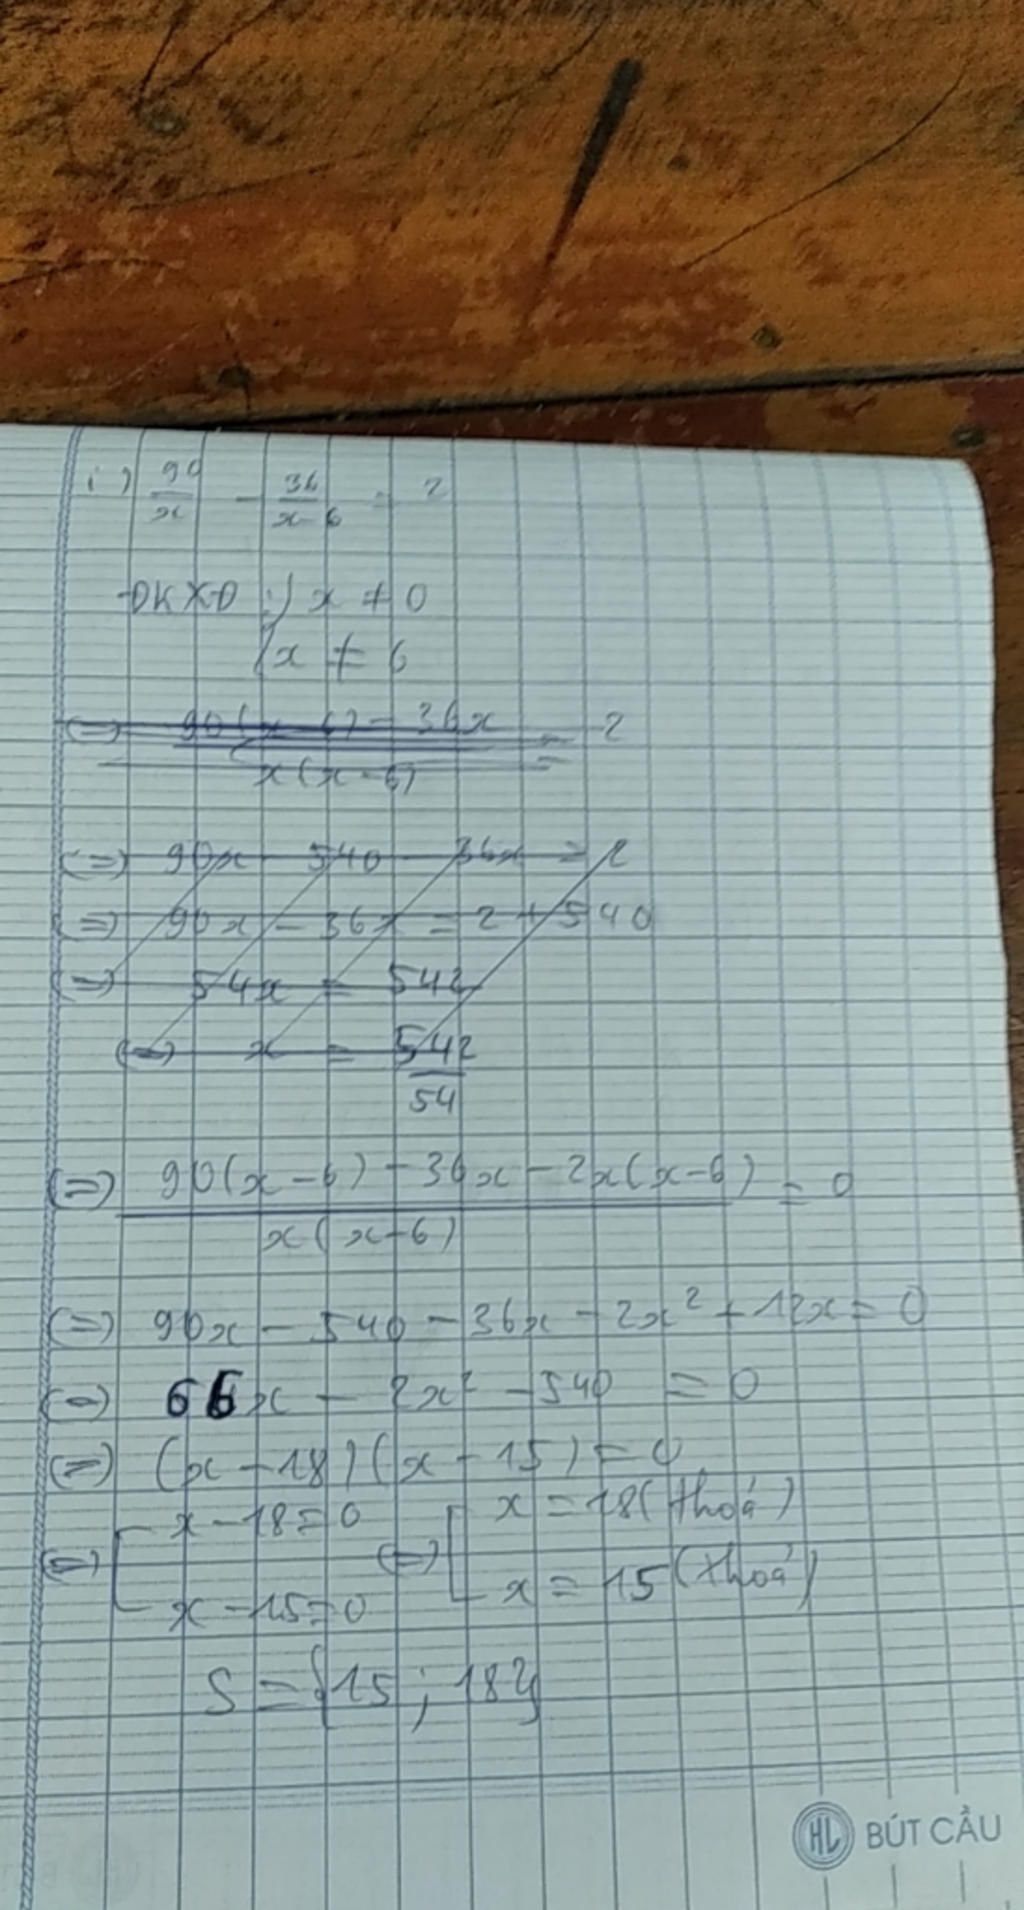 i) 90/x - 36/x-6 = 2
ĐKXĐ :) x ≠ 0
{x ≠ 6
(=) 90(x-6) - 36x / x(x-6) = 2
(=) 90x - 540 - 36x = 2
(=) 90x - 36x = 2 + 540
(=) 54x = 542
(=) x = 542/54
(=) 90(x-6) - 36x - 2x(x-6) / x(x-6) = 0
(=) 90x - 540 - 36x - 2x² + 12x = 0
(=) 66x - 2x² - 540 = 0
(=) (x-18)(x-15) = 0
(=) [ x-18=0 (=) [ x = 18 (thoả)
x-15=0 x = 15 (thoả)
S = {15 ; 18}
HL BÚT CẦU